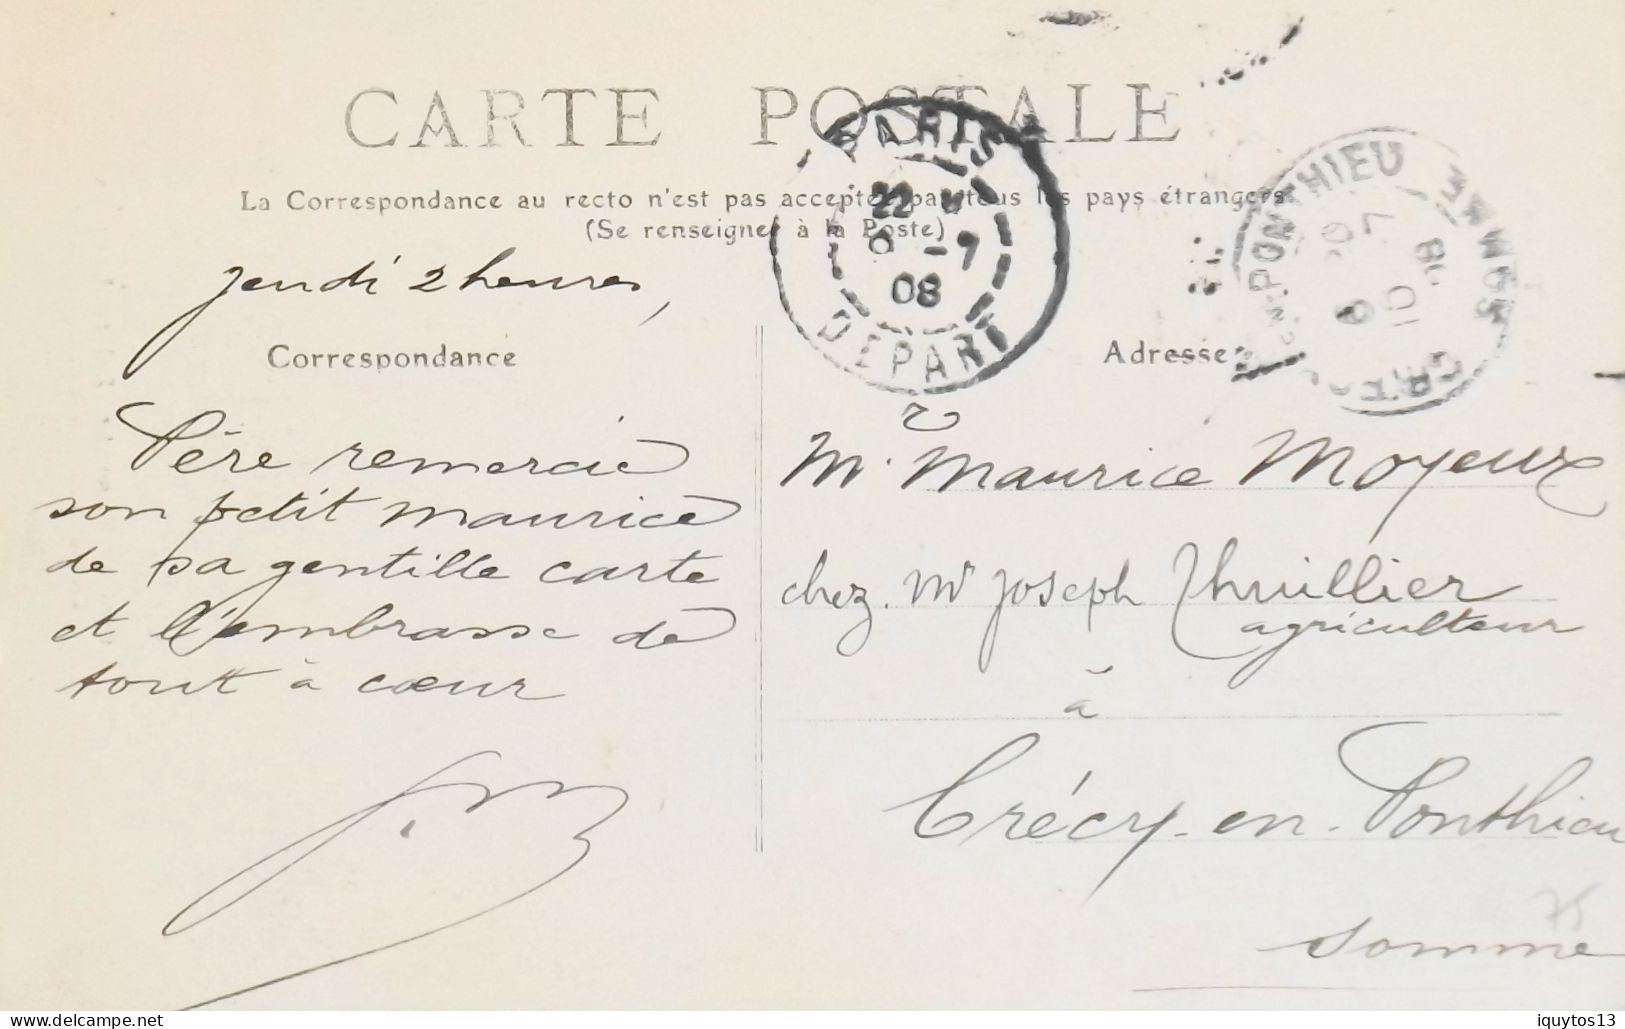 CARTE POSTALE
La Correspondance au recto n'est pas acceptée par tous les pays étrangers
(Se renseigner à la Poste)
PARIS
22
6 -7
08
DEPART
PONTHIEU
SOMME
jeudi 2 heures,
Correspondance
Père remercie
son petit maurice
de sa gentille carte
et l'embrasse de
tout à cœur
Adresse
Mr Maurice Moyeux
chez Mr Joseph Thuillier
agriculteur
à
Crécy-en-Ponthieu
Somme
75
delcampe.net
iquytos13